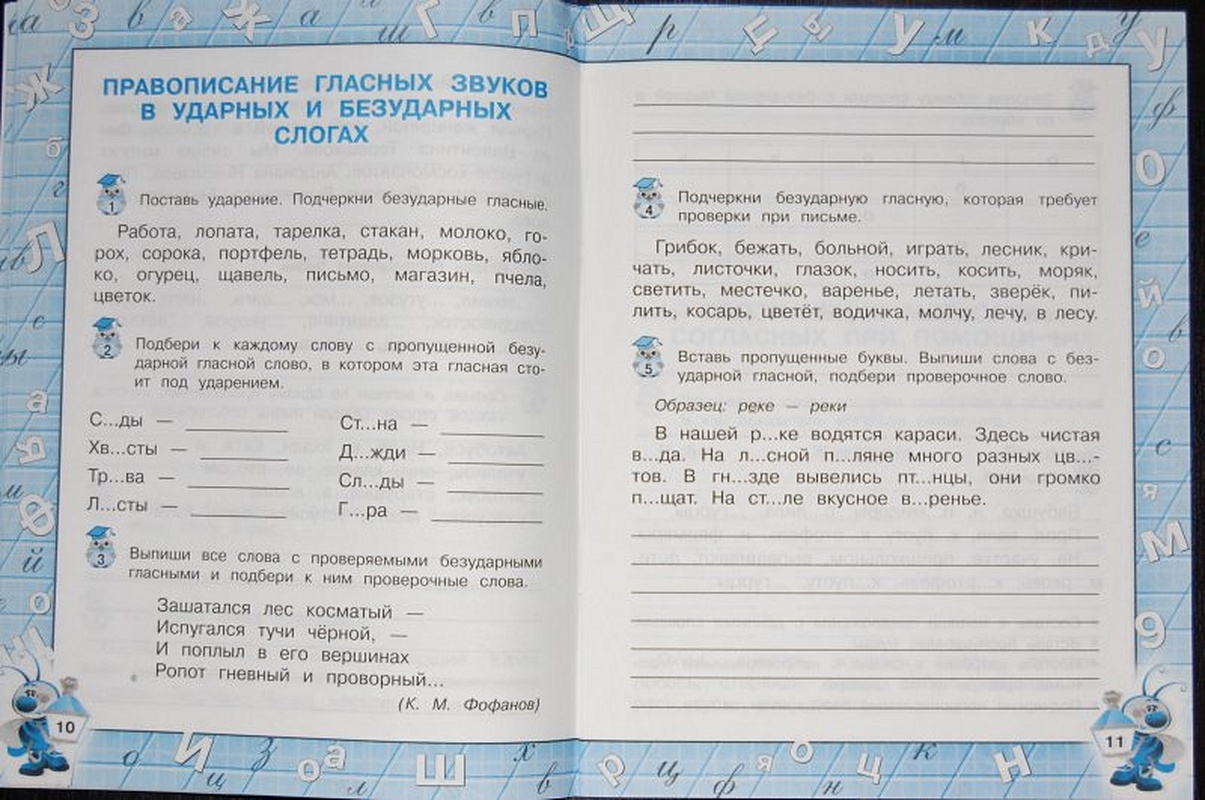 ПРАВОПИСАНИЕ ГЛАСНЫХ ЗВУКОВ
В УДАРНЫХ И БЕЗУДАРНЫХ
СЛОГАХ
1 Поставь ударение. Подчеркни безударные гласные.
Работа, лопата, тарелка, стакан, молоко, го-
рох, сорока, портфель, тетрадь, морковь, ябло-
ко, огурец, щавель, письмо, магазин, пчела,
цветок.
2 Подбери к каждому слову с пропущенной безу-
дарной гласной слово, в котором эта гласная сто-
ит под ударением.
С...ды — ________ Ст...на — ________
Хв...сты — ________ Д...жди — ________
Тр...ва — ________ Сл...ды — ________
Л...сты — ________ Г...ра — ________
3 Выпиши все слова с проверяемыми безударными
гласными и подбери к ним проверочные слова.
Зашатался лес косматый —
Испугался тучи чёрной, —
И поплыл в его вершинах
Ропот гневный и проворный...
(К. М. Фофанов)
10
4 Подчеркни безударную гласную, которая требует
проверки при письме.
Грибок, бежать, больной, играть, лесник, кри-
чать, листочки, глазок, носить, косить, моряк,
светить, местечко, варенье, летать, зверёк, пи-
лить, косарь, цветёт, водичка, молчу, лечу, в лесу.
5 Вставь пропущенные буквы. Выпиши слова с без-
ударной гласной, подбери проверочное слово.
Образец: реке — реки
В нашей р...ке водятся караси. Здесь чистая
в...да. На л...сной п...ляне много разных цв...-
тов. В гн...зде вывелись пт...нцы, они громко
п...щат. На ст...ле вкусное в...ренье.
11